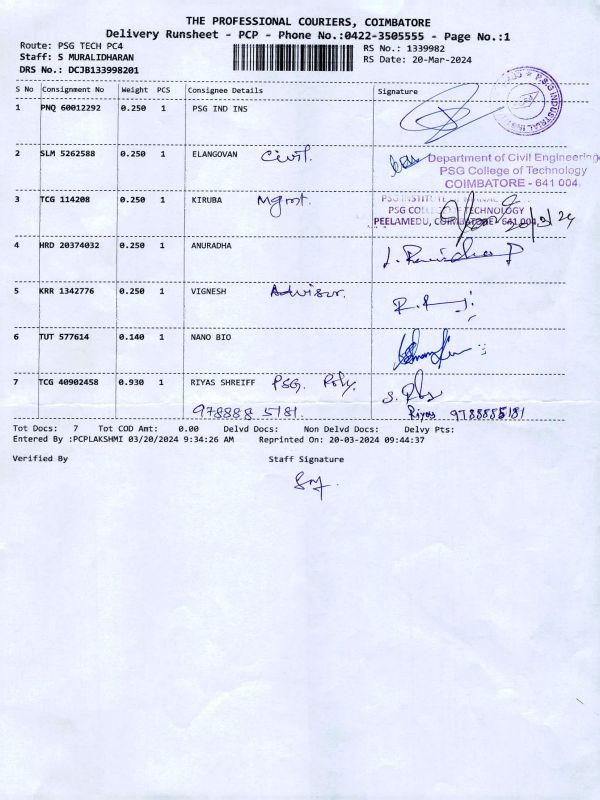 THE PROFESSIONAL COURIERS, COIMBATORE
Delivery Runsheet - PCP - Phone No.:0422-3505555 - Page No.:1
Route: PSG TECH PC4
RS No.: 1339982
Staff: S MURALIDHARAN
RS Date: 20-Mar-2024
DRS No.: DCJB133998201
S No Consignment No Weight PCS Consignee Details Signature
1 PNQ 60012292 0.250 1 PSG IND INS
2 SLM 5262588 0.250 1 ELANGOVAN Civil.
Department of Civil Engineering
PSG College of Technology
COIMBATORE - 641 004.
3 TCG 114208 0.250 1 KIRUBA Mgmt.
PSG INSTITUTE
TECHNOLOGY
PEELAMEDU, COIMBATORE - 641 004
20/3/24
4 HRD 20374032 0.250 1 ANURADHA
5 KRR 1342776 0.250 1 VIGNESH Advisor.
6 TUT 577614 0.140 1 NANO BIO
7 TCG 40902458 0.930 1 RIYAS SHREIFF PSG. Poly.
978888 5181
Riyas 9788885181
Tot Docs: 7 Tot COD Amt: 0.00 Delvd Docs: Non Delvd Docs: Delvy Pts:
Entered By :PCPLAKSHMI 03/20/2024 9:34:26 AM Reprinted On: 20-03-2024 09:44:37
Verified By Staff Signature